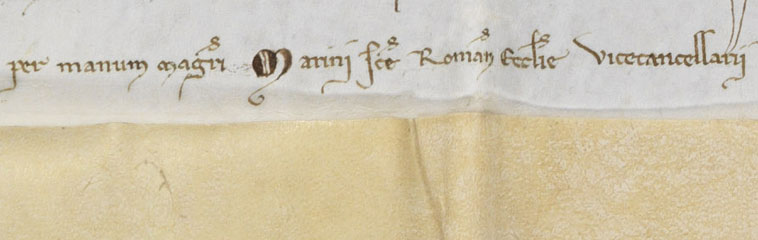 per manum magri Marini sce Roman Ecclie vicecancellarii